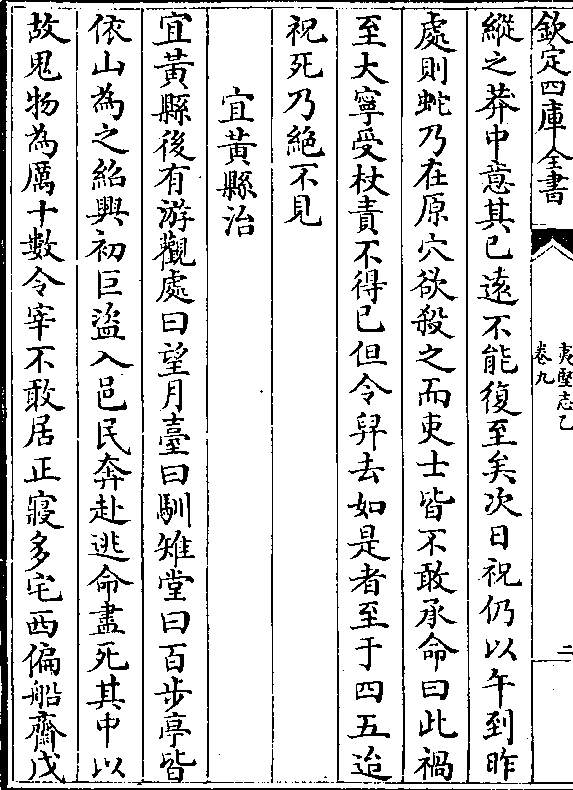 欽定四庫全書
夷堅志乙
卷九
二
縱之莽中意其已遠不能復至矣次日祝仍以午到昨
處則蛇乃在原穴欲殺之而吏士皆不敢承命曰此禍
至大寧受杖責不得已但令舁去如是者至于四五迨
祝死乃絶不見
宜黄縣治
宜黄縣後有游觀處曰望月臺曰馴雉堂曰百步亭皆
依山為之紹興初巨盜入邑民奔赴逃命盡死其中以
故鬼物為厲十數令宰不敢居正寢多宅西偏船齋戊